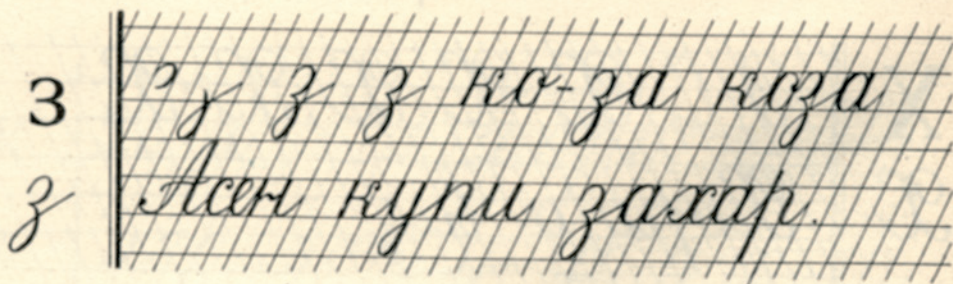 З з з ко-за коза
з Асен купи захар.